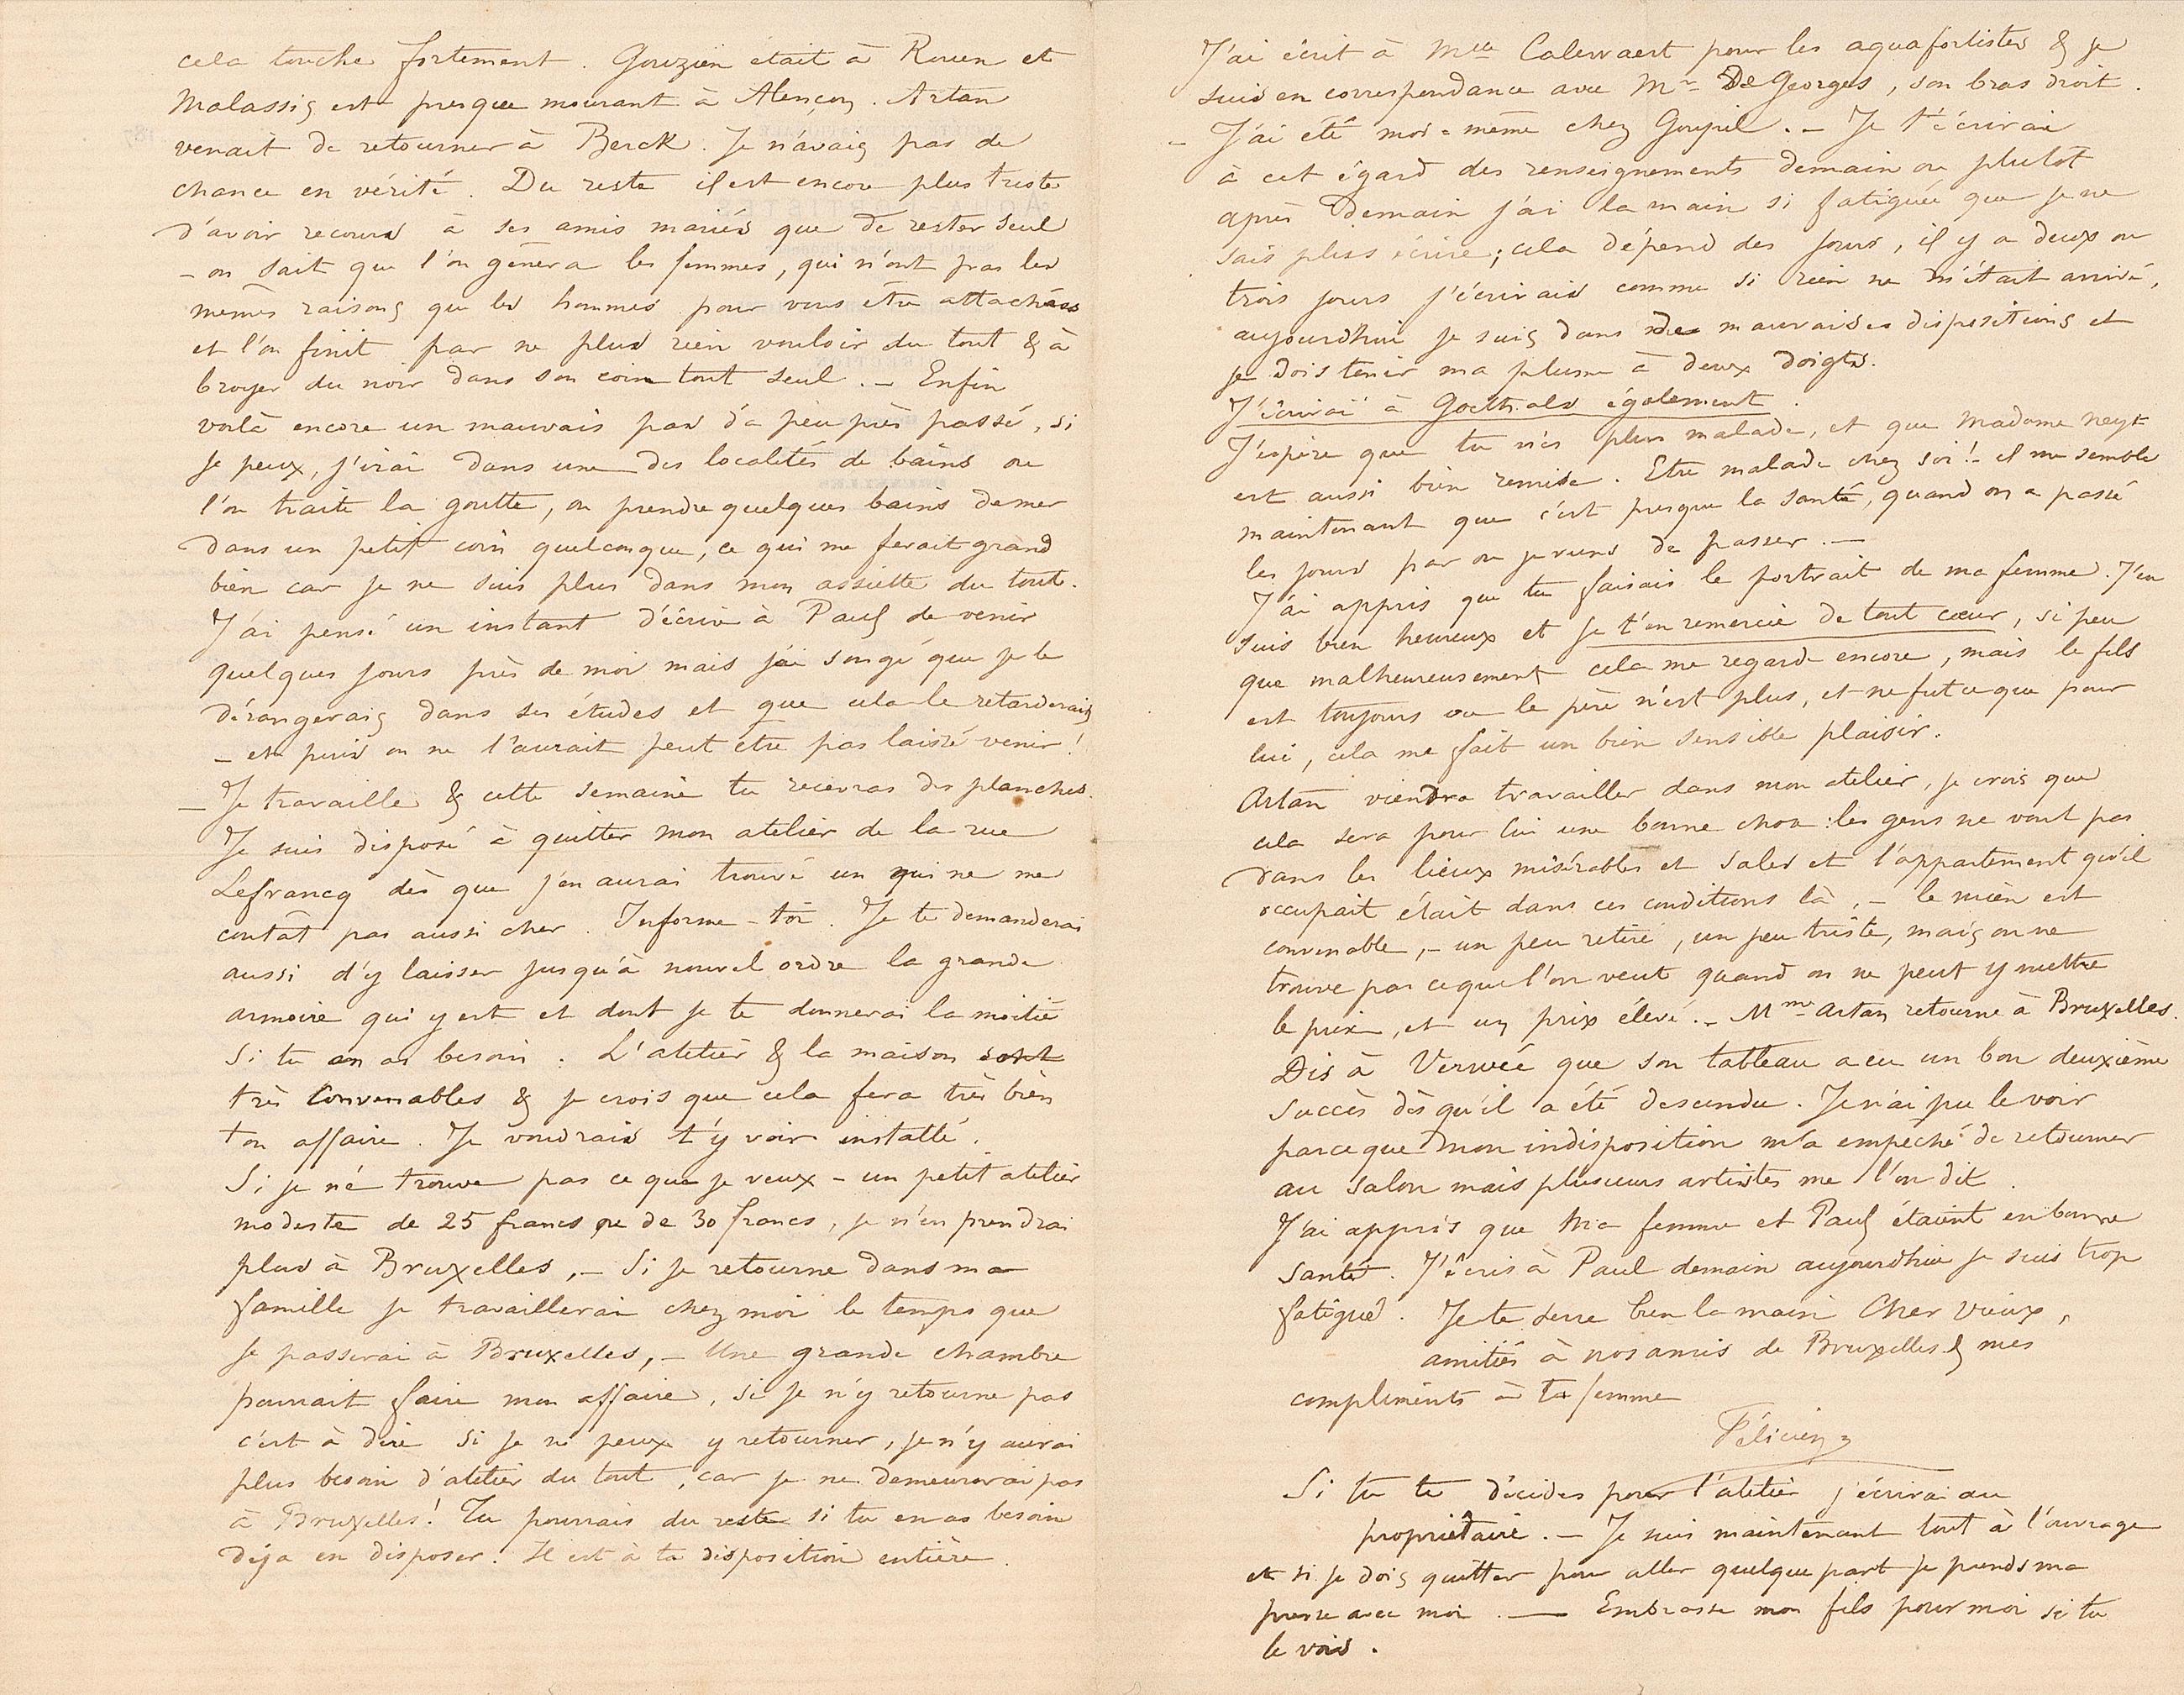 cela touche fortement. Gouzien était à Rouen et
Malassis est presque mourant à Alençon. Artan
venait de retourner à Berck. Je n'avais pas de
chance en vérité. Du reste il est encore plus triste
d'avoir recours à ses amis mariés que de rester seul
– on sait que l'on gênera les femmes, qui n'ont pas les
mêmes raisons que les hommes pour vous être attachées
et l'on finit par ne plus rien vouloir du tout & à
broyer du noir dans son coin tout seul. – Enfin
voilà encore un mauvais pas d'à peu près passé, si
je peux, j'irai dans une des localités de bains ou
l'on traite la goutte, ou prendre quelques bains de mer
dans un petit coin quelconque, ce qui me ferait grand
bien car je ne suis plus dans mon assiette du tout.
J'ai pensé un instant d'écrire à Paul de venir
quelques jours près de moi mais j'ai songé que je le
dérangerais dans ses études et que cela le retarderais
– et puis on ne l'aurait peut être pas laissé venir!
– Je travaille & cette semaine tu recevras des planches.
Je suis disposé à quitter mon atelier de la rue
Lefrancq dès que j'en aurai trouvé un qui ne me
coutât pas aussi cher. Informe-toi. Je te demanderai
aussi d'y laisser jusqu'à nouvel ordre la grande
armoire qui y est et dont je te donnerai la moitié
si tu en as besoin. L'atelier & la maison sont
très convenables & je crois que cela fera très bien
ton affaire. Je voudrais t'y voir installé.
Si je ne trouve pas ce que je veux – un petit atelier
modeste de 25 francs ou de 30 francs, je n'en prendrai
plus à Bruxelles, – Si je retourne dans ma
famille je travaillerai chez moi le temps que
je passerai à Bruxelles, – Une grande chambre
pourrait faire mon affaire, si je n'y retourne pas
c'est à dire si je ne peux y retourner, je n'y aurai
plus besoin d'atelier du tout, car je ne demeurerai pas
à Bruxelles! Tu pourrais du reste si tu en as besoin
déja en disposer. Il est à ta disposition entière.
J'ai écrit à Mlle Calewaert pour les aquafortistes & je
suis en correspondance avec Mr De Georges, son bras droit.
– J'ai été moi-même chez Goupil. – Je t'écrirai
à cet égard des renseignements demain ou plutot
après demain j'ai la main si fatiguée que je ne
sais plus écrire; cela dépend des jours, il y a deux ou
trois jours j'écrivais comme si rien ne m'était arrivé,
aujourdhui je suis dans de mauvaises dispositions et
je dois tenir ma plume à deux doigts.
J'écrirai à Goethals également.
J'espère que tu n'es plus malade, et que Madame Neyt
est aussi bien remise. Etre malade chez soi! – il me semble
maintenant que c'est presque la santé, quand on a passé
les jours par ou je viens de passer. –
J'ai appris que tu faisais le portrait de ma femme. J'en
suis bien heureux et je t'en remercie de tout cœur, si peu
que malheureusement cela me regarde encore, mais le fils
est toujours ou le père n'est plus, et ne fut ce que pour
lui, cela me fait un bien sensible plaisir.
Artan viendra travailler dans mon atelier, je crois que
cela sera pour lui une bonne chose: les gens ne vont pas
dans les lieux misérables et sales et l'appartement qu'il
occupait était dans ces conditions là, – le mien est
convenable, – un peu retiré, un peu triste, mais on ne
trouve pas ce que l'on veut quand on ne peut y mettre
le prix, et un prix élevé. – Mme Artan retourne à Bruxelles.
Dis à Verwée que son tableau a eu un bon deuxième
succès dès qu'il a été descendu. Je n'ai pu le voir
parce que mon indisposition m'a empêché de retourner
au salon mais plusieurs artistes me l'on dit.
J'ai appris que ma femme et Paul étaient en bonne
santé. J'écris à Paul demain aujourdhui je suis trop
fatigué. Je te serre bien la main Cher vieux,
amitiés à nos amis de Bruxelles & mes
compliments à ta femme
Félicien
Si tu te décides pour l'atelier j'écrirai au
propriétaire. – Je suis maintenant tout à l'ouvrage
et si je dois quitter pour aller quelque part je prends ma
presse avec moi. — Embrasse mon fils pour moi si tu
le vois.